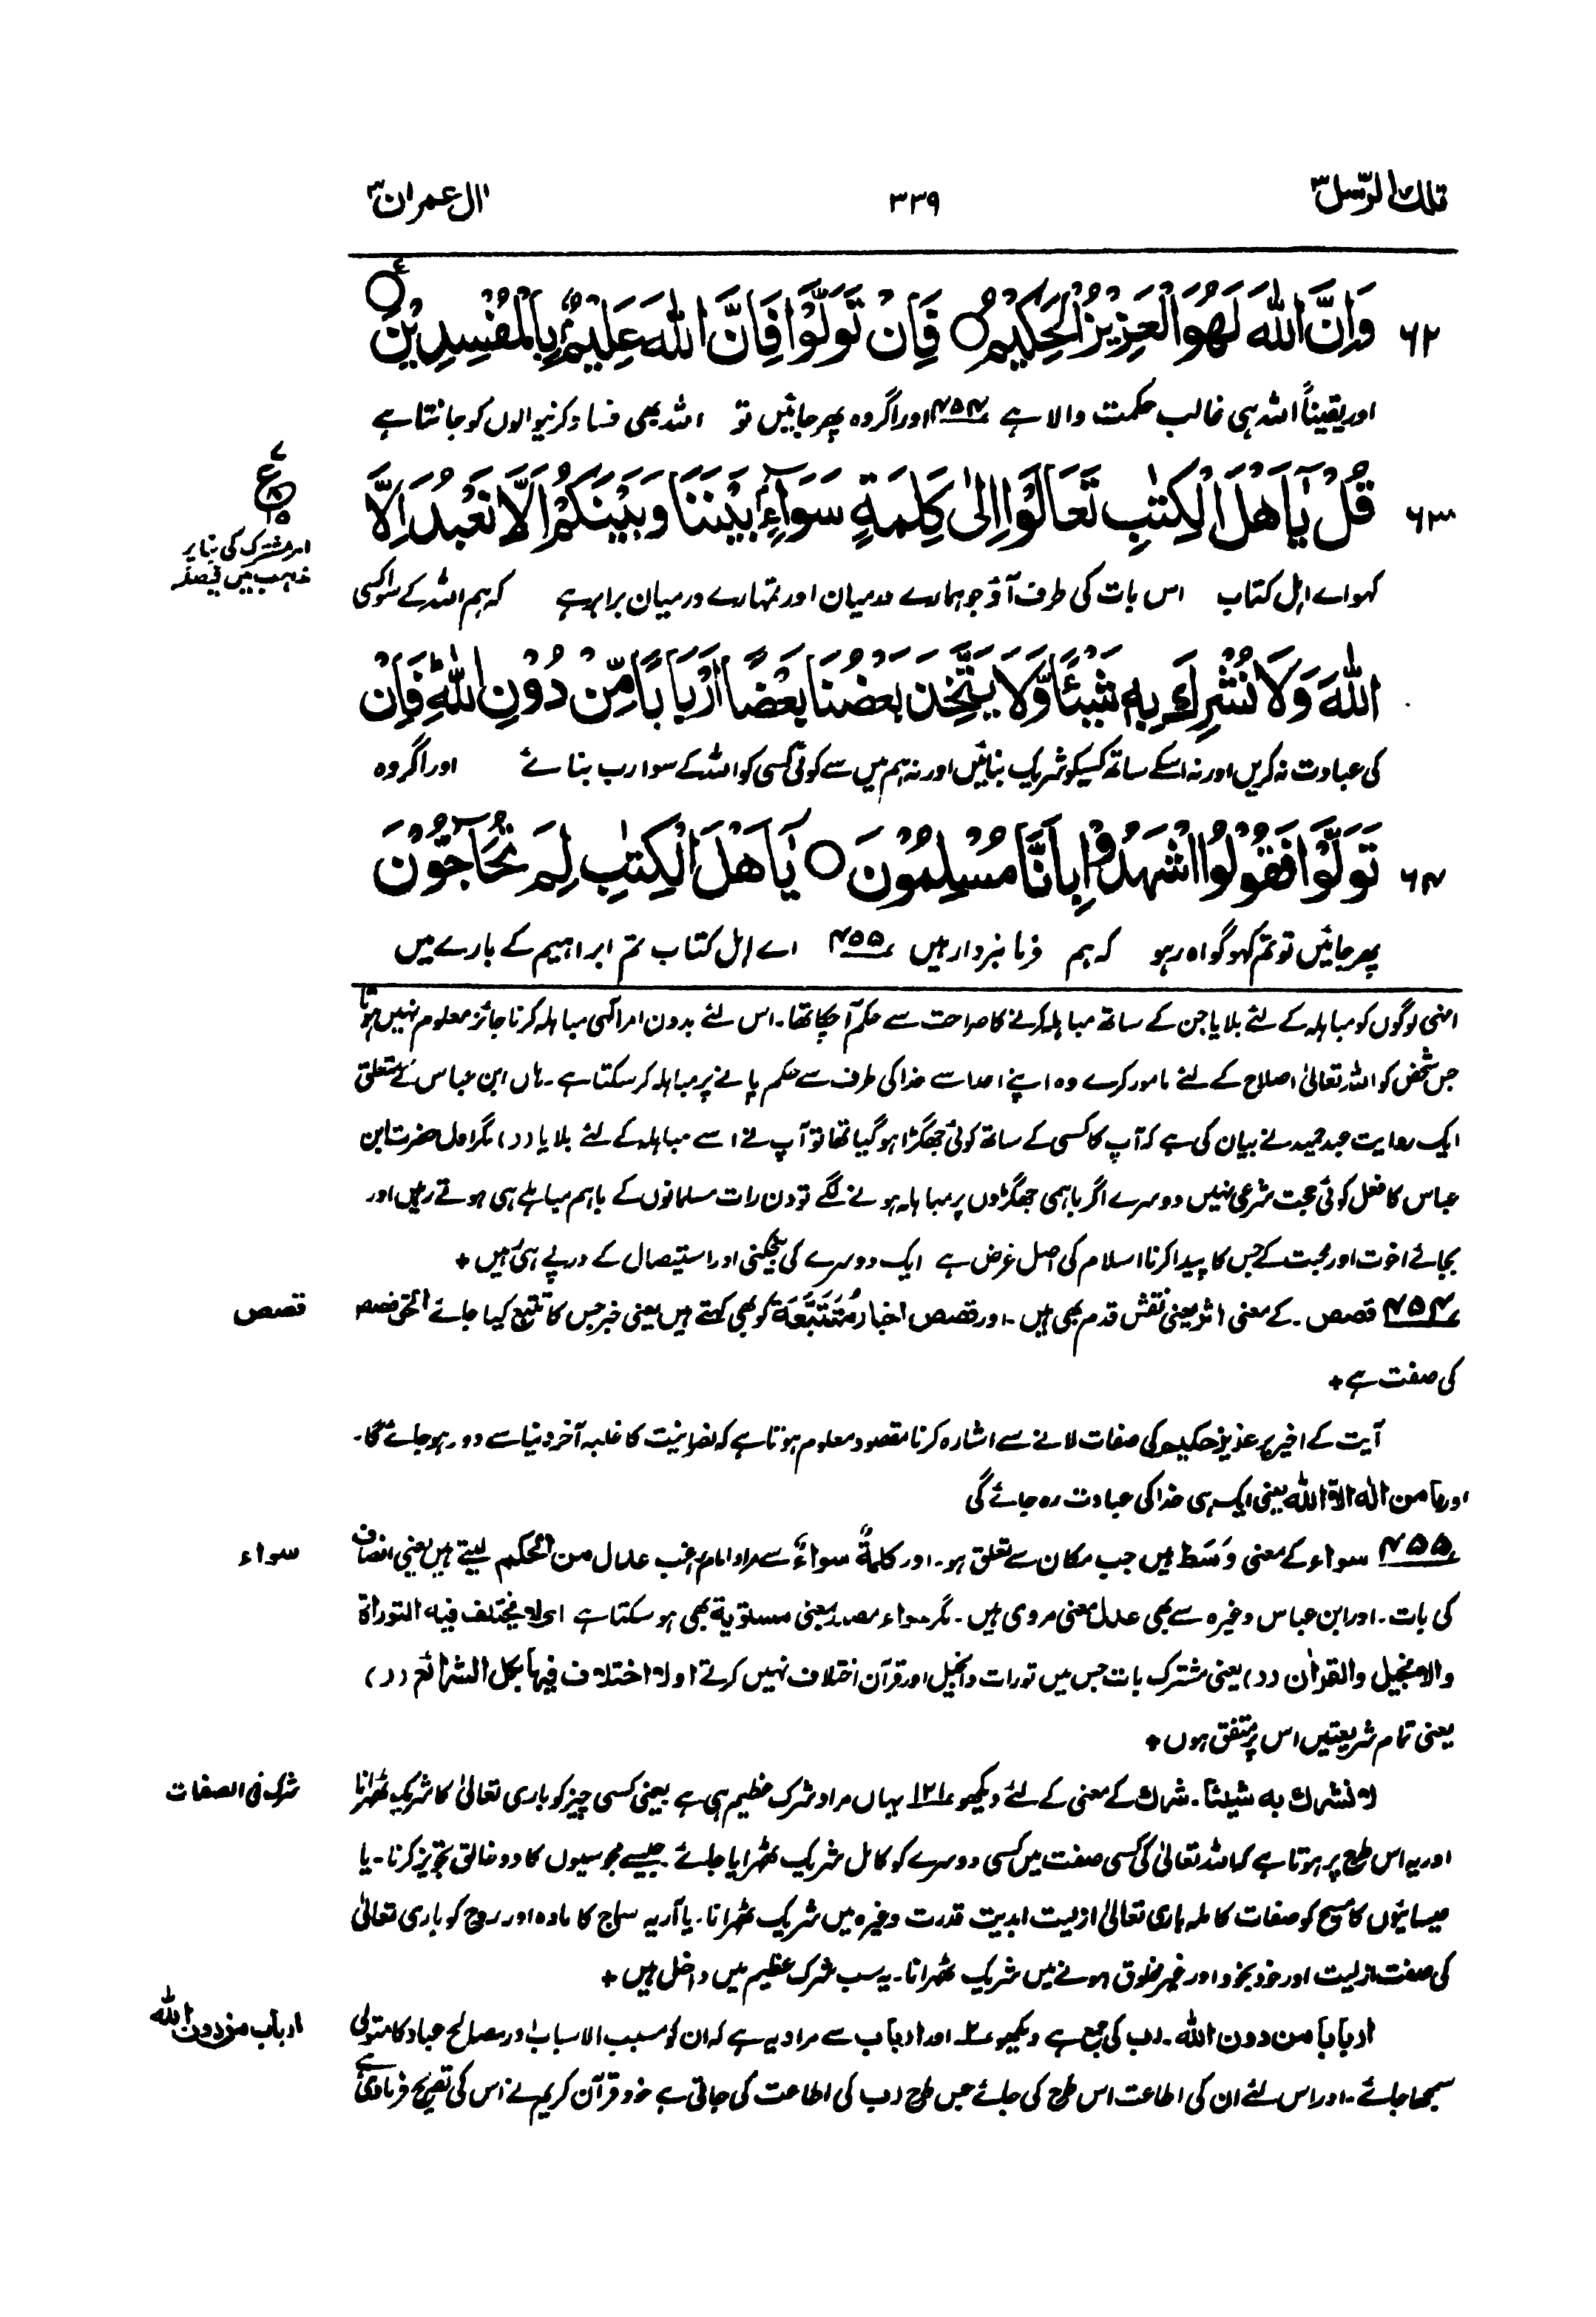 تلك الرّسل ۳
۳۳۹
اٰل عمران ۳
۶۲ وَاِنَّ اللّٰهَ لَهُوَ الْعَزِيْزُ الْحَكِيْمُ ○ فَاِنْ تَوَلَّوْا فَاِنَّ اللّٰهَ عَلِيْمٌۢ بِالْمُفْسِدِيْنَ ○ ع
اور یقیناً اللہ ہی غالب حکمت والا ہے ۴۵۴ اور اگر وہ پھر جائیں تو اللہ بھی فساد کرنیوالوں کو جانتا ہے
۶۳ قُلْ يٰۤاَهْلَ الْكِتٰبِ تَعَالَوْا اِلٰى كَلِمَةٍ سَوَآءٍۭ بَيْنَنَا وَبَيْنَكُمْ اَلَّا نَعْبُدَ اِلَّا
امر مشترک کی بنا پر
مذہب میں فیصلہ
کہو اے اہل کتاب اس بات کی طرف آؤ جو ہمارے درمیان اور تمہارے درمیان برابر ہے کہ ہم اللہ کے سوا کسی
اللّٰهَ وَلَا نُشْرِكَ بِهٖ شَيْـًٔا وَّلَا يَتَّخِذَ بَعْضُنَا بَعْضًا اَرْبَابًا مِّنْ دُوْنِ اللّٰهِ ؕ فَاِنْ
کی عبادت نہ کریں اور نہ اسکے ساتھ کسیکو شریک بنائیں اور نہ ہم میں سے کوئی کسی کو اللہ کے سوا رب بنائے اور اگر وہ
تَوَلَّوْا فَقُوْلُوا اشْهَدُوْا بِاَنَّا مُسْلِمُوْنَ ○ ۶۴ يٰۤاَهْلَ الْكِتٰبِ لِمَ تُحَآجُّوْنَ
پھر جائیں تو تم کہو گواہ رہو کہ ہم فرمانبردار ہیں ۴۵۵ اے اہل کتاب تم ابراہیم کے بارے میں
انہی لوگوں کو مباہلہ کے لئے بلایا جن کے ساتھ مباہلہ کرنے کا صراحت سے حکم آچکا تھا۔ اس لئے بدون امر الٰہی مباہلہ کرنا جائز معلوم نہیں ہوتا
جس شخص کو اللہ تعالیٰ اصلاح کے لئے مامور کرے وہ اپنے اعدا سے خدا کی طرف سے حکم پانے پر مباہلہ کر سکتا ہے۔ ہاں ابن عباس کے متعلق
ایک روایت عبد حمید نے بیان کی ہے کہ آپ کا کسی کے ساتھ کوئی جھگڑا ہو گیا تھا تو آپ نے اسے مباہلہ کے لئے بلایا (ر) مگر اول حضرت ابن
عباس کا فعل کوئی حجت شرعی نہیں دوسرے اگر باہمی جھگڑوں پر مباہلہ ہونے لگے تو دن رات مسلمانوں کے باہم مباہلے ہی ہوتے رہیں اور
بجائے اخوت اور محبت کے جس کا پیدا کرنا اسلام کی اصل غرض ہے ایک دوسرے کی بیخکنی اور استیصال کے درپے ہی رہیں +
۴۵۴ قصص۔ کے معنی اثر یعنی نقش قدم بھی ہیں۔ اور قصص اخبار مُتَتَبَّعَة کو بھی کہتے ہیں یعنی خبر جس کا تتبع کیا جائے الحق قصص
قصص
کی صفت ہے +
آیت کے اخیر پر عزیز حکیم کی صفات لانے سے اشارہ کرنا مقصود معلوم ہوتا ہے کہ نصرانیت کا غلبہ آخر دنیا سے دور ہو جائے گا۔
اور ما من اله الا الله یعنی ایک ہی خدا کی عبادت رہ جائے گی
۴۵۵ سواء کے معنی وَسَط ہیں جب مکان سے تعلق ہو۔ اور كلمةٌ سواءٌ سے مراد امام راغب عدل من الحكم لیتے ہیں یعنی انصاف
سواء
کی بات۔ اور ابن عباس وغیرہ سے بھی عدل معنی مروی ہیں۔ مگر سواء مصدر بمعنی مستوية بھی ہو سکتا ہے ای لا يختلف فيه التوراة
والانجيل والقراٰن (ر) یعنی مشترک بات جس میں تورات و انجیل اور قرآن اختلاف نہیں کرتے او لا اختلاف فيها بكل الشرائع (ر)
یعنی تمام شریعتیں اس پر متفق ہوں +
لا نشرك به شيئا۔ شرك کے معنی کے لئے دیکھو ۱۲۱ یہاں مراد شرک عظیم ہی ہے یعنی کسی چیز کو باری تعالیٰ کا شریک ٹھہرانا
شرک فی الصفات
اور یہ اس طرح پر ہوتا ہے کہ اللہ تعالیٰ کی کسی صفت میں کسی دوسرے کو کامل شریک ٹھہرایا جائے جیسے مجوسیوں کا دو خالق تجویز کرنا۔ یا
عیسائیوں کا مسیح کو صفات کاملہ باری تعالیٰ ازلیت ابدیت قدرت وغیرہ میں شریک ٹھہرانا۔ یا آریہ سماج کا مادہ اور روح کو باری تعالیٰ
کی صفت ازلیت اور خود بخود اور غیر مخلوق ہونے میں شریک ٹھہرانا۔ یہ سب شرک عظیم میں داخل ہیں +
اربابا من دون الله۔ رب کی جمع ہے دیکھو ۲ اور ارباب سے مراد یہ ہے کہ ان کو مسبب الاسباب اور مصالح عباد کا متولی
ارباب من دون الله
سمجھا جائے۔ اور اس لئے ان کی اطاعت اس طرح کی جائے جس طرح رب کی اطاعت کی جاتی ہے خود قرآن کریم نے اس کی تصریح فرما دی ہے